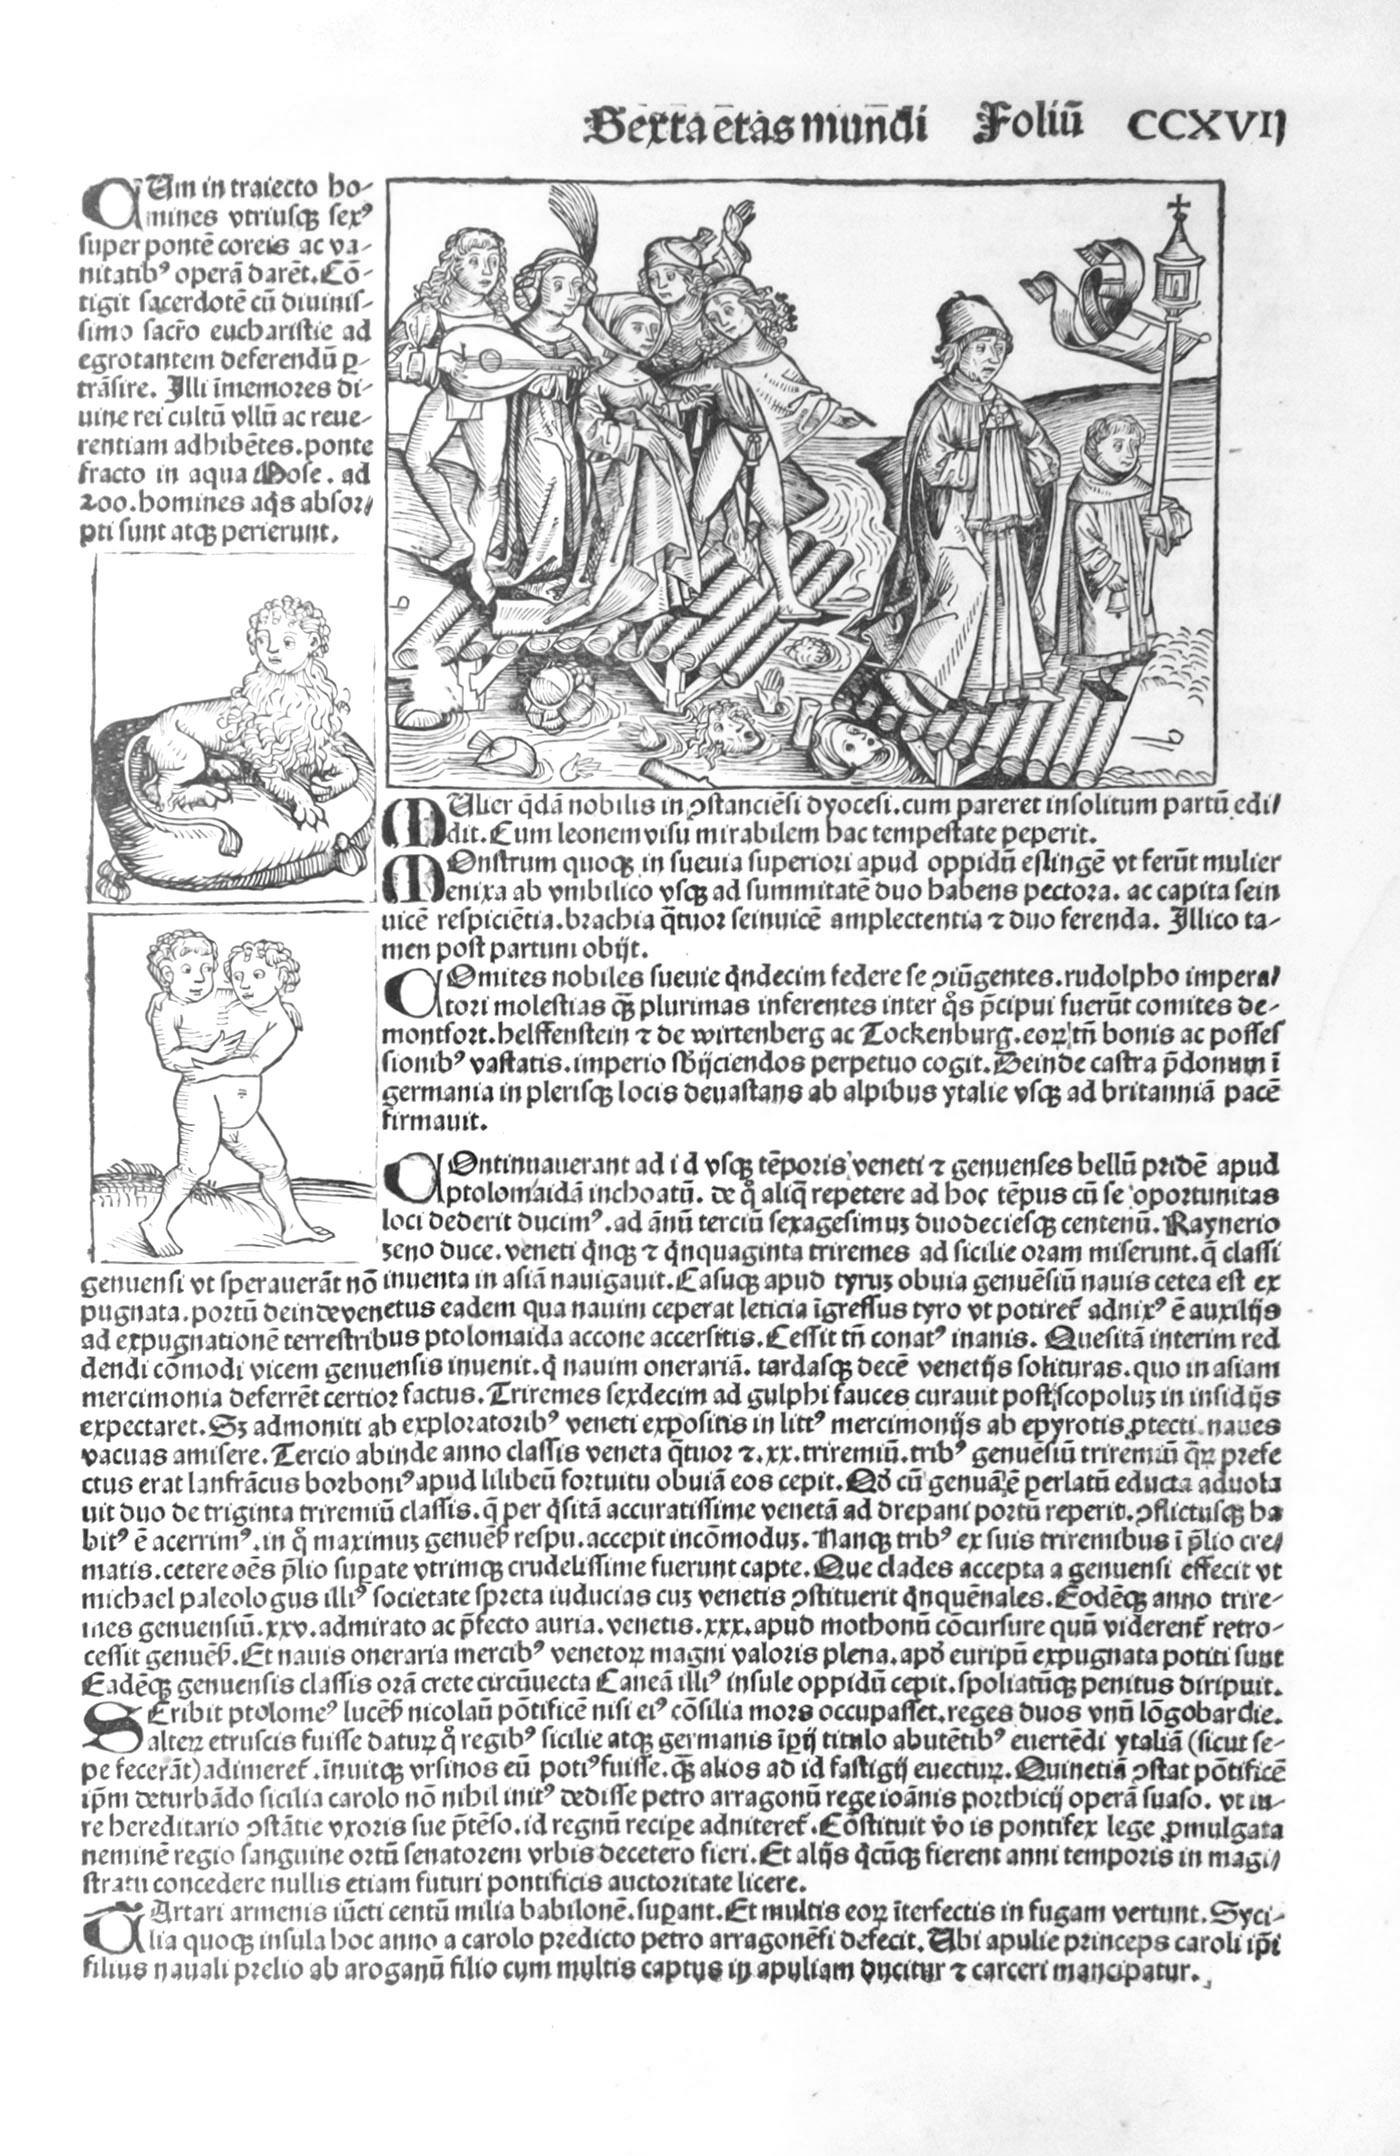 Sexta etas mundi Foliū CCXVII
CUm in traiecto ho-
mines vtriusqꝫ sexꝰ
super pontē coreis ac va-
nitatibꝰ operā darēt. Cō-
tigit sacerdotē cū diuinis-
simo sacr̄o eucharistie ad
egrotantem deferendū ꝑ-
trāsire. Illi īmemores di-
uine rei cultū vllū ac reue-
rentiam adhibētes. ponte
fracto in aqua Mose. ad
200. homines aq̄s absor-
pti sunt atqꝫ perierunt.
MUlier q̄dā nobilis in ꝯstanciēsi dyocesi. cum pareret insolitum partū edi-
dit. Eum leonem visu mirabilem hac tempestate peperit.
MOnstrum quoqꝫ in sueuia superiori apud oppidū eslingē vt ferūt mulier
enixa ab vmbilico vsqꝫ ad summitatē duo habens pectora. ac capita sein
uicē respiciētia. brachia q̄tuor seinuicē amplectentia ⁊ duo ferenda. Illico ta-
men post partum obijt.
COmites nobiles sueuie q̇ndecim federe se ꝯiūgentes. rudolpho impera-
tori molestias qꝫ̄ plurimas inferentes inter q̊s p̄cipui fuerūt comites de-
montfort. helffenstein ⁊ de wirtenberg ac Tockenburg. eoꝝ tn̄ bonis ac posses
sionibꝰ vastatis. imperio sb̄ijciendos perpetuo cogit. Deinde castra p̄donum ī
germania in plerisqꝫ locis deuastans ab alpibus ytalie vsqꝫ ad britanniā pacē
firmauit.
COntinnauerant ad id vsqꝫ tēporis veneti ⁊ genuenses bellū pridē apud
ptolomaidā inchoatū. de q̊ aliq̄ repetere ad hoc tēpus cū se oportunitas
loci dederit ducimꝰ. ad ānū terciū sexagesimuꝫ duodeciesqꝫ centenū. Raynerio
ꝫeno duce. veneti q̇nqꝫ ⁊ q̇nquaginta triremes ad sicilie oram miserunt. q̄ classi
genuensi vt sperauerāt nō inuenta in asiā nauigauit. Casuqꝫ apud tyruꝫ obuia genuēsiū nauis cetea est ex
pugnata. portū dein de venetus eadem qua nauim ceperat leticia īgressus tyro vt potireꝉ adnixꝰ ē auxilijs
ad expugnationē terrestribus ptolomaida accone accersitis. Cessit tn̄ conatꝰ inanis. Quesitā interim red
dendi cōmodi vicem genuensis inuenit. q̇ nauim onerariā. tardasqꝫ decē venetijs solituras. quo in asiam
mercimonia deferrēt certior factus. Triremes sexdecim ad gulphi fauces curauit post scopoluꝫ in insidijs
expectaret. Sꝫ admoniti ab exploratoribꝰ veneti expositis in littꝰ mercimonijs ab epyrotis ꝓtecti. naues
vacuas amisere. Tercio abinde anno classis veneta q̄tuor ⁊. xx. triremiū. tribꝰ genuēsiū triremiū q̄ꝝ prefe
ctus erat lanfrācus borboniꝰ apud lilibeū fortuitu obuiā eos cepit. Qd̄ cū genuā ē perlatū educta aduola
uit duo de triginta triremiū classis. q̄ per q̇sitā accuratissime venetā ad drepani portū reperit. ꝯflictusqꝫ ha
bitꝰ ē acerrimꝰ. in q̊ maximuꝫ genuēs̄ respu. accepit incōmoduꝫ. Nanqꝫ tribꝰ ex suis triremibus ī p̄lio cre-
matis. cetere oēs p̄lio suꝑate vtrimqꝫ crudelissime fuerunt capte. Que clades accepta a genuensi effecit vt
michael paleologus illiꝰ societate spreta iuducias cuꝫ venetis ꝯstituerit q̇nquēnales. Eodēqꝫ anno trire-
mes genuensiū. xxv. admirato ac p̄fecto auria. venetis. xxx. apud mothonū cōcursure quū viderenꝉ retro-
cessit genuēs̄. Et nauis oneraria mercibꝰ venetoꝝ magni valoris plena. apd̄ euripū expugnata potiti sunt
Eadēqꝫ genuensis classis orā crete circūuecta Caneā illiꝰ insule oppidū cepit. spoliatūqꝫ penitus diripuit.
SCribit ptolomeꝰ lucēs̄ nicolaū pōtificē nisi eiꝰ cōsilia mors occupasset. reges duos vnū lōgobardie.
alteꝝ etruscis fuisse datuꝝ q̊ regibꝰ sicilie atqꝫ germanis īꝑij titulo abutētibꝰ euertēdi ytaliā (sicut se-
pe fecerāt) adimereꝉ. īnuitqꝫ vrsinos eū potiꝰ fuisse. qꝫ̄ alios ad id fastigij euectuꝝ. Quinetiā ꝯstat pōtificē
ip̄m deturbādo sicilia carolo nō nihil initꝰ dedisse petro arragonū rege ioānis porthicij operā suaso. vt iu-
re hereditario ꝯstātie vxoris sue p̄tēso. id regnū reciꝑe adnitereꝉ. Cōstituit v̊o is pontifex lege ꝓmulgata
neminē regio sanguine ortū senatorem vrbis decetero fieri. Et alijs q̇cūqꝫ fierent anni temporis in magi-
stratu concedere nullis etiam futuri pontificis auctoritate licere.
TArtari armenis iūcti centū milia babilonē. suꝑant. Et multis eoꝝ īterfectis in fugam vertunt. Syci-
lia quoqꝫ insula hoc anno a carolo predicto petro arragonēsi defecit. Ubi apulie princeps caroli ip̄i
filius nauali prelio ab aroganū filio cum multis captus in apuliam ducitur ⁊ carceri mancipatur.